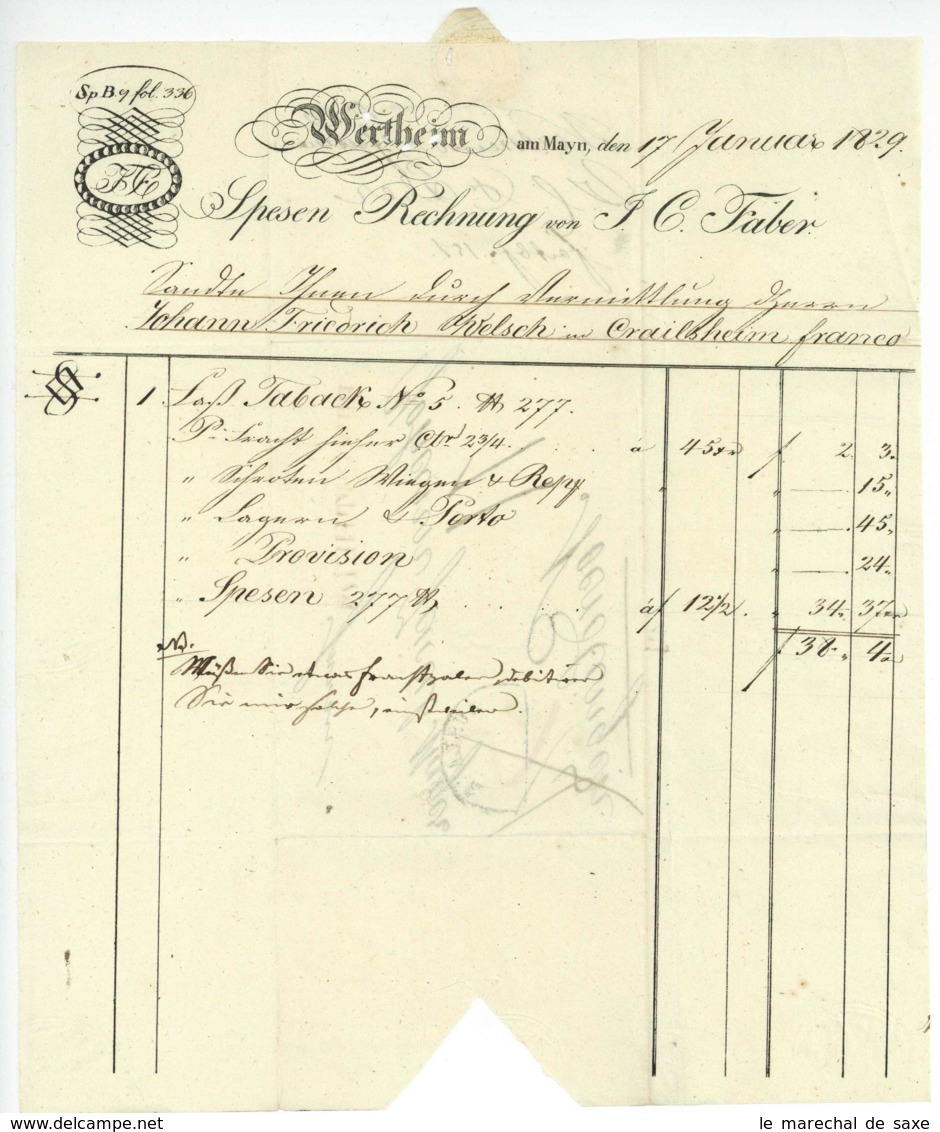 Sp B. 9 fol. 336
Wertheim am Mayn, den 17 Januar 1829.
J F C
Spesen Rechnung von J. C. Faber.
Sandte Ihnen durch Vermittlung Herrn
Johann Friedrich Welsch in Crailsheim franco
1 Faß Taback No 5. ℔ 277.
Pr Fracht hieher Ctr 2 3/4. à 45 xr f 2. 3.
" Schroten Wiegen & Repp. " " —. 15 "
" Lagern & Porto " —. 45 "
" Provision " —. 24 "
" Spesen 277 ℔ . . . . à f 12 1/2. " 34. 37 xr
f 38. " 4 xr
NB.
Sie mir
le marechal de saxe